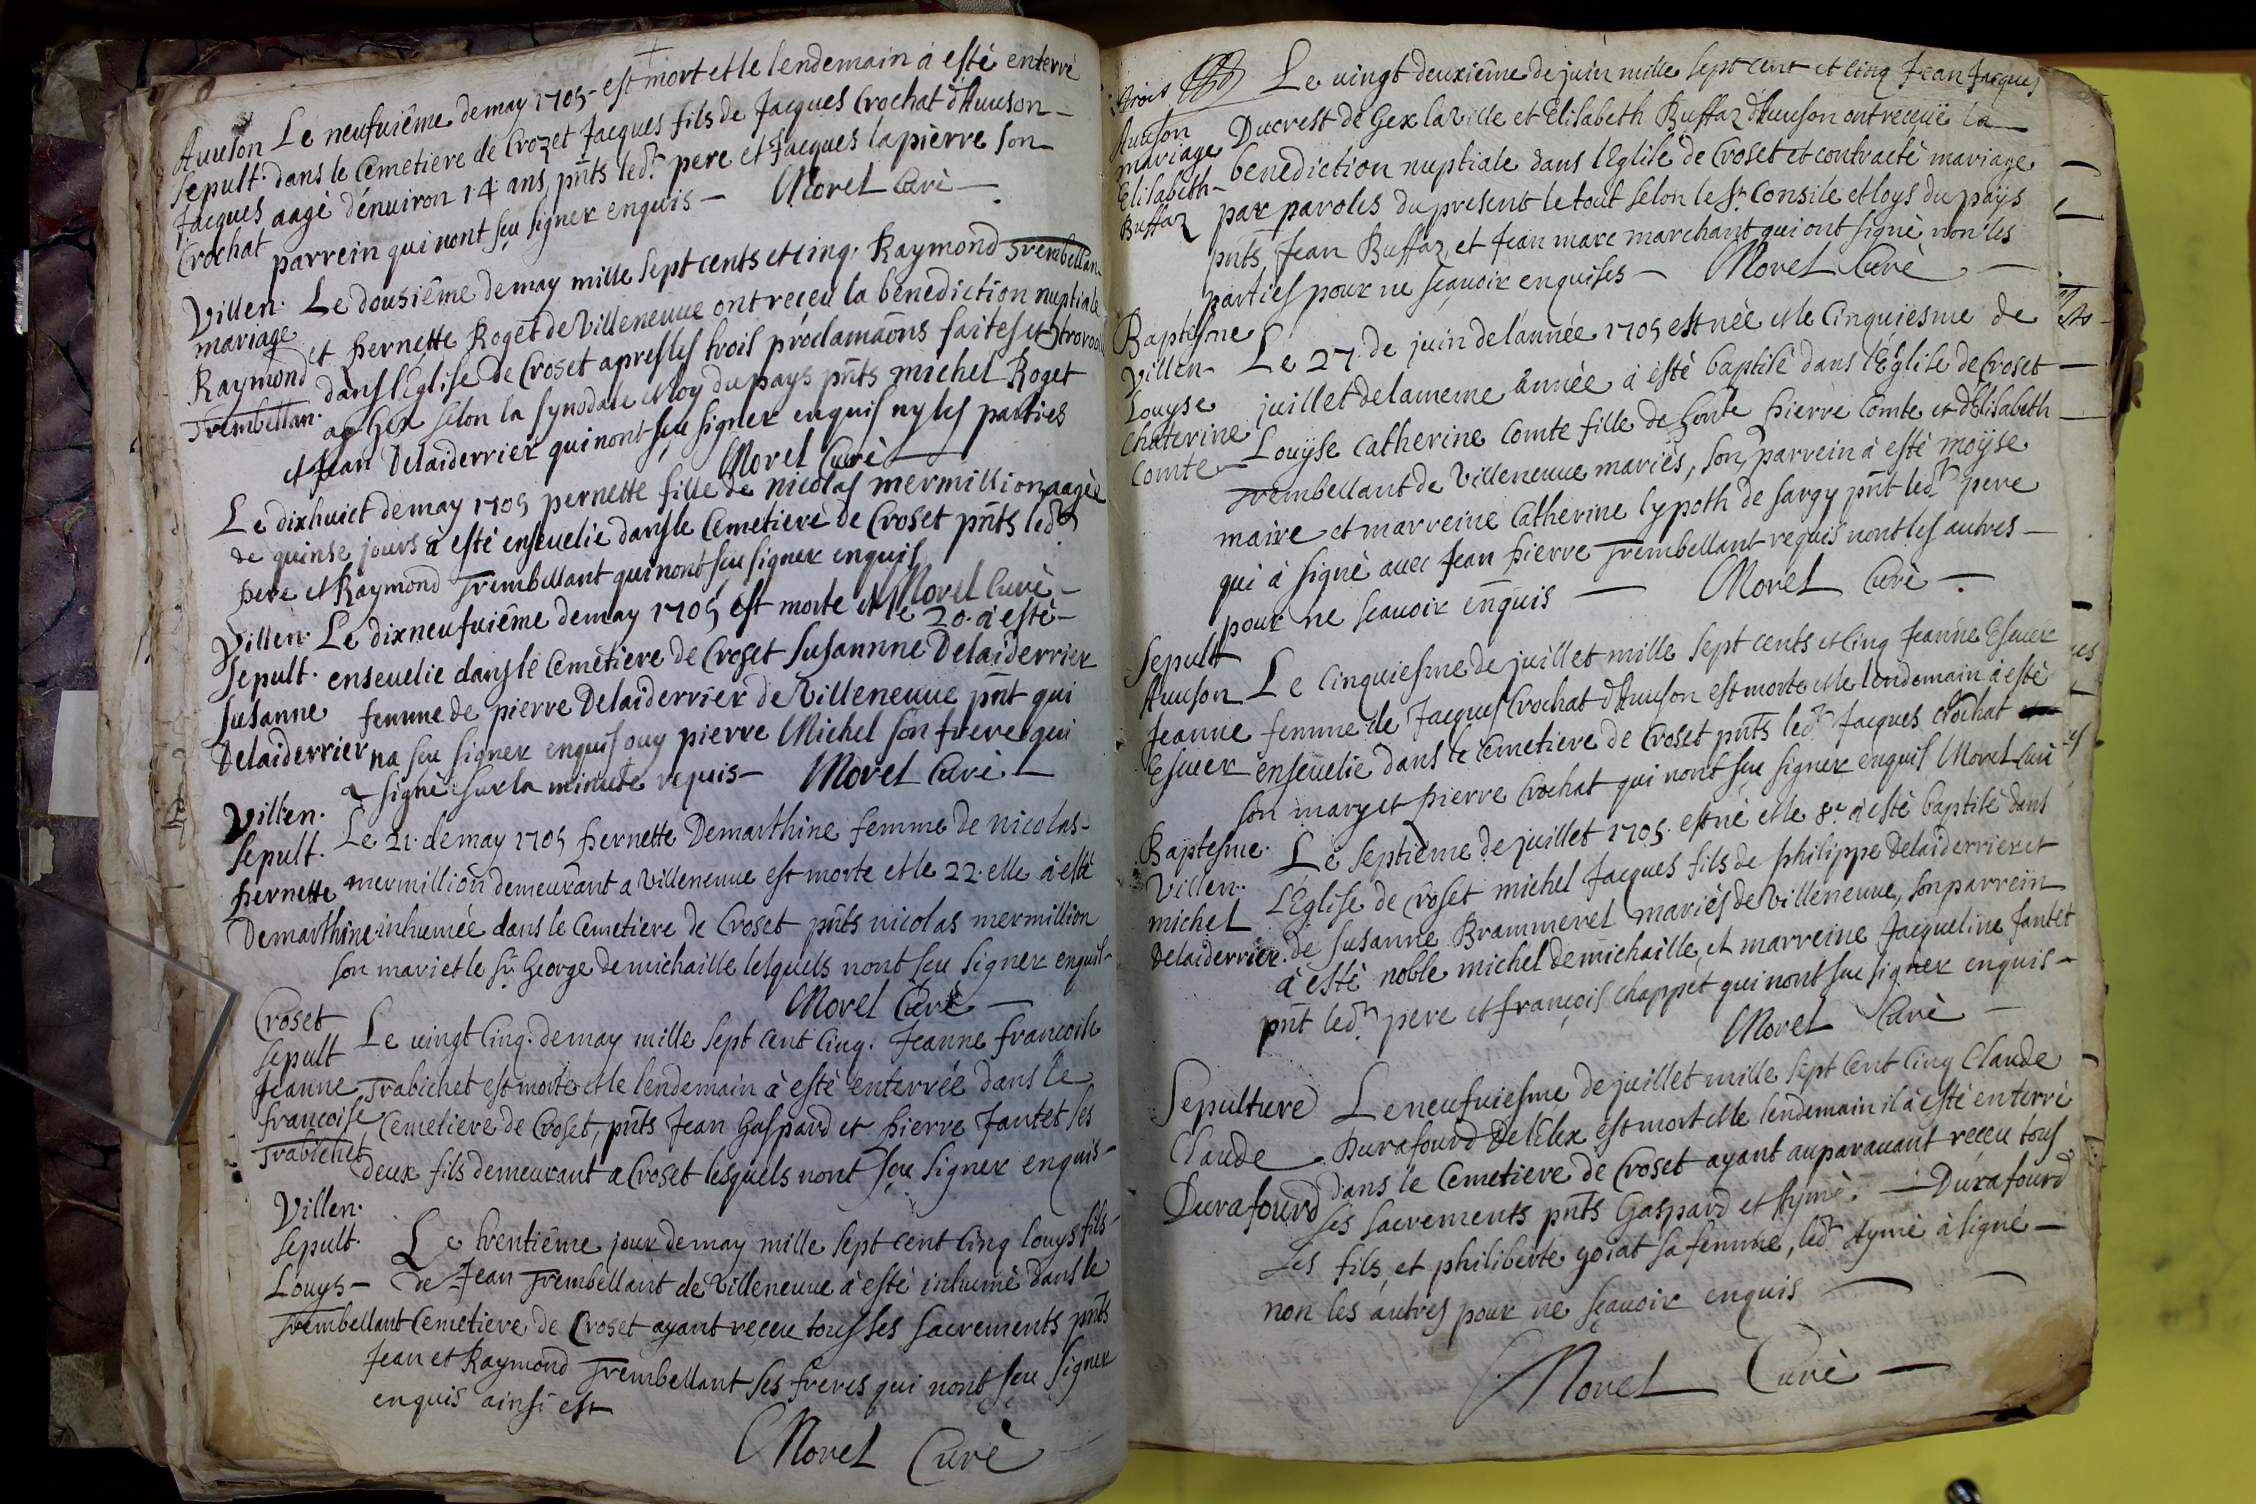 Auuson Le neufuiême de may 1705 est mort et le lendemain à esté enterré
Sepult. dans le Cemetiere de Crozet Jacques fils de Jacques Crochat d'Auuson
Jacques aagé dénuiron 14 ans, pñts led.t pere et Jacques lapierre son
Crochat parrein qui nont sçu signer enquis — Morel Curé —
Villen. Le dousiême de may mille sept cents et cinq. Raymond Trembellan
mariage et pernette Roget de Villeneuue ont receu la benediction nuptiale
Raymond dans l'Eglise de Croset apres les trois proclamaõns faites et
Trembellan. a Gex selon la synodale et loy du pays pñts michel Roget
et Jean Delaiderrier qui nont sçu signer enquis ny les parties
Morel Curé
Le dixhuict de may 1705 pernette fille de nicolas mermillion aagée
de quinse jours à esté enseuelie dans le Cemetiere de Croset pñts led.t
pere et Raymond Trembellant qui nont sçu signer enquis
Morel Curé
Villen. Le dixneufuiême de may 1705 est morte et le 20. à esté
Sepult. enseuelie dans le Cemetiere de Croset Susannne Delaiderrier
Susanne femme de pierre Delaiderrier de Villeneuue pñt qui
Delaiderrier na sçu signer enquis ouy pierre Michel son frere qui
a signé sur la minute requis — Morel Curé
Villen.
Sepult. Le 21. de may 1705 pernette Demarthine femme de nicolas
pernette mermillion demeurant a Villeneuue est morte et le 22. elle à esté
Demarthine inhumée dans le Cemetiere de Croset pñts nicolas mermillion
son mari et le Sr. George demichaille lesquels nont sçu signer enquis
Morel Curé —
Croset
Sepult Le uingt cinq. de may mille sept cent cinq. Jeanne francoise
Jeanne Trabichet est morte et le lendemain à esté enterrée dans le
françoise Cemetiere de Croset, pñts Jean Gaspard et pierre Jantet ses
Trabichet deux fils demeurant a Croset lesquels nont sçu signer enquis —
Villen.
Sepult. Le trentiême jour de may mille sept cent cinq louys fils
Louys — de Jean Trembellant de Villeneuue à esté inhumé dans le
Trembellant Cemetiere de Croset ayant reçeu tous ses sacrements pñts
Jean et Raymond Trembellant ses freres qui nont sçu signer
enquis ainsi est
Morel Curé
Le uingt deuxiême de juin mille sept cent et cinq Jean Jacques
Auuson Ducrest de Gex la Ville et Elisabeth Buffaz d'Auuson ont reçeüe la
mariage benediction nuptiale dans l'Eglise de Croset et contracté mariage
Elisabeth par paroles du present le tout selon le St. Consile et loys du païs
Buffaz pñts Jean Buffaz, et Jean marc marchant qui ont signé non les
parties pour ne sçauoir enquises — Morel Curé —
Baptesme
Villen. Le 27. de juin de l'année 1705 est née et le Cinquiesme de
Louyse juillet de la meme année à esté baptisé dans l'Eglise de Croset
Chaterine Louyse Catherine Comte fille de pierre Comte et d'Elisabeth
Comte Trembellant de Villeneuue mariés, son parrein à esté moyse
maire et marreine Catherine lypoth de sargy pñt led.t pere
qui à signé auec Jean pierre Trembellant requis nont les autres —
pour ne sçauoir enquis — Morel Curé —
Sepult Le Cinquiesme de juillet mille sept cents et cinq Jeanne Esuuer
Auuson
Jeanne femme de Jacques Crochat d'Auuson est morte et le lendemain à esté
Esuuer enseuelie dans le Cemetiere de Croset pñts led.t Jacques Crochat
son mary et pierre Crochat qui nont sçu signer enquis Morel Curé
Baptesme. Le septiême de juillet 1705. est né et le 8e. à esté baptisé dans
Villen. L'Eglise de Croset michel Jacques fils de philippe Delaiderrier et
michel de Susanne Brammerel mariés de Villeneuue, son parrein
Delaiderrier. à esté noble michel demichaille, et marreine Jacqueline Jantet
pñt led.t pere et françois Chappet qui nont sçu signer enquis —
Morel Curé —
Sepulture Le neufuiesme de juillet mille sept cent cinq Claude
Claude Durafourd de lélex est mort et le lendemain il à esté enterré
Durafourd dans le Cemetiere de Croset ayant auparauant reçeu tous
ses sacrements pñts Gaspard et Aymé — Durafourd
ses fils, et philiberte goiat sa femme, led.t Aymé à signé —
non les autres pour ne sçauoir enquis —
Morel Curé —